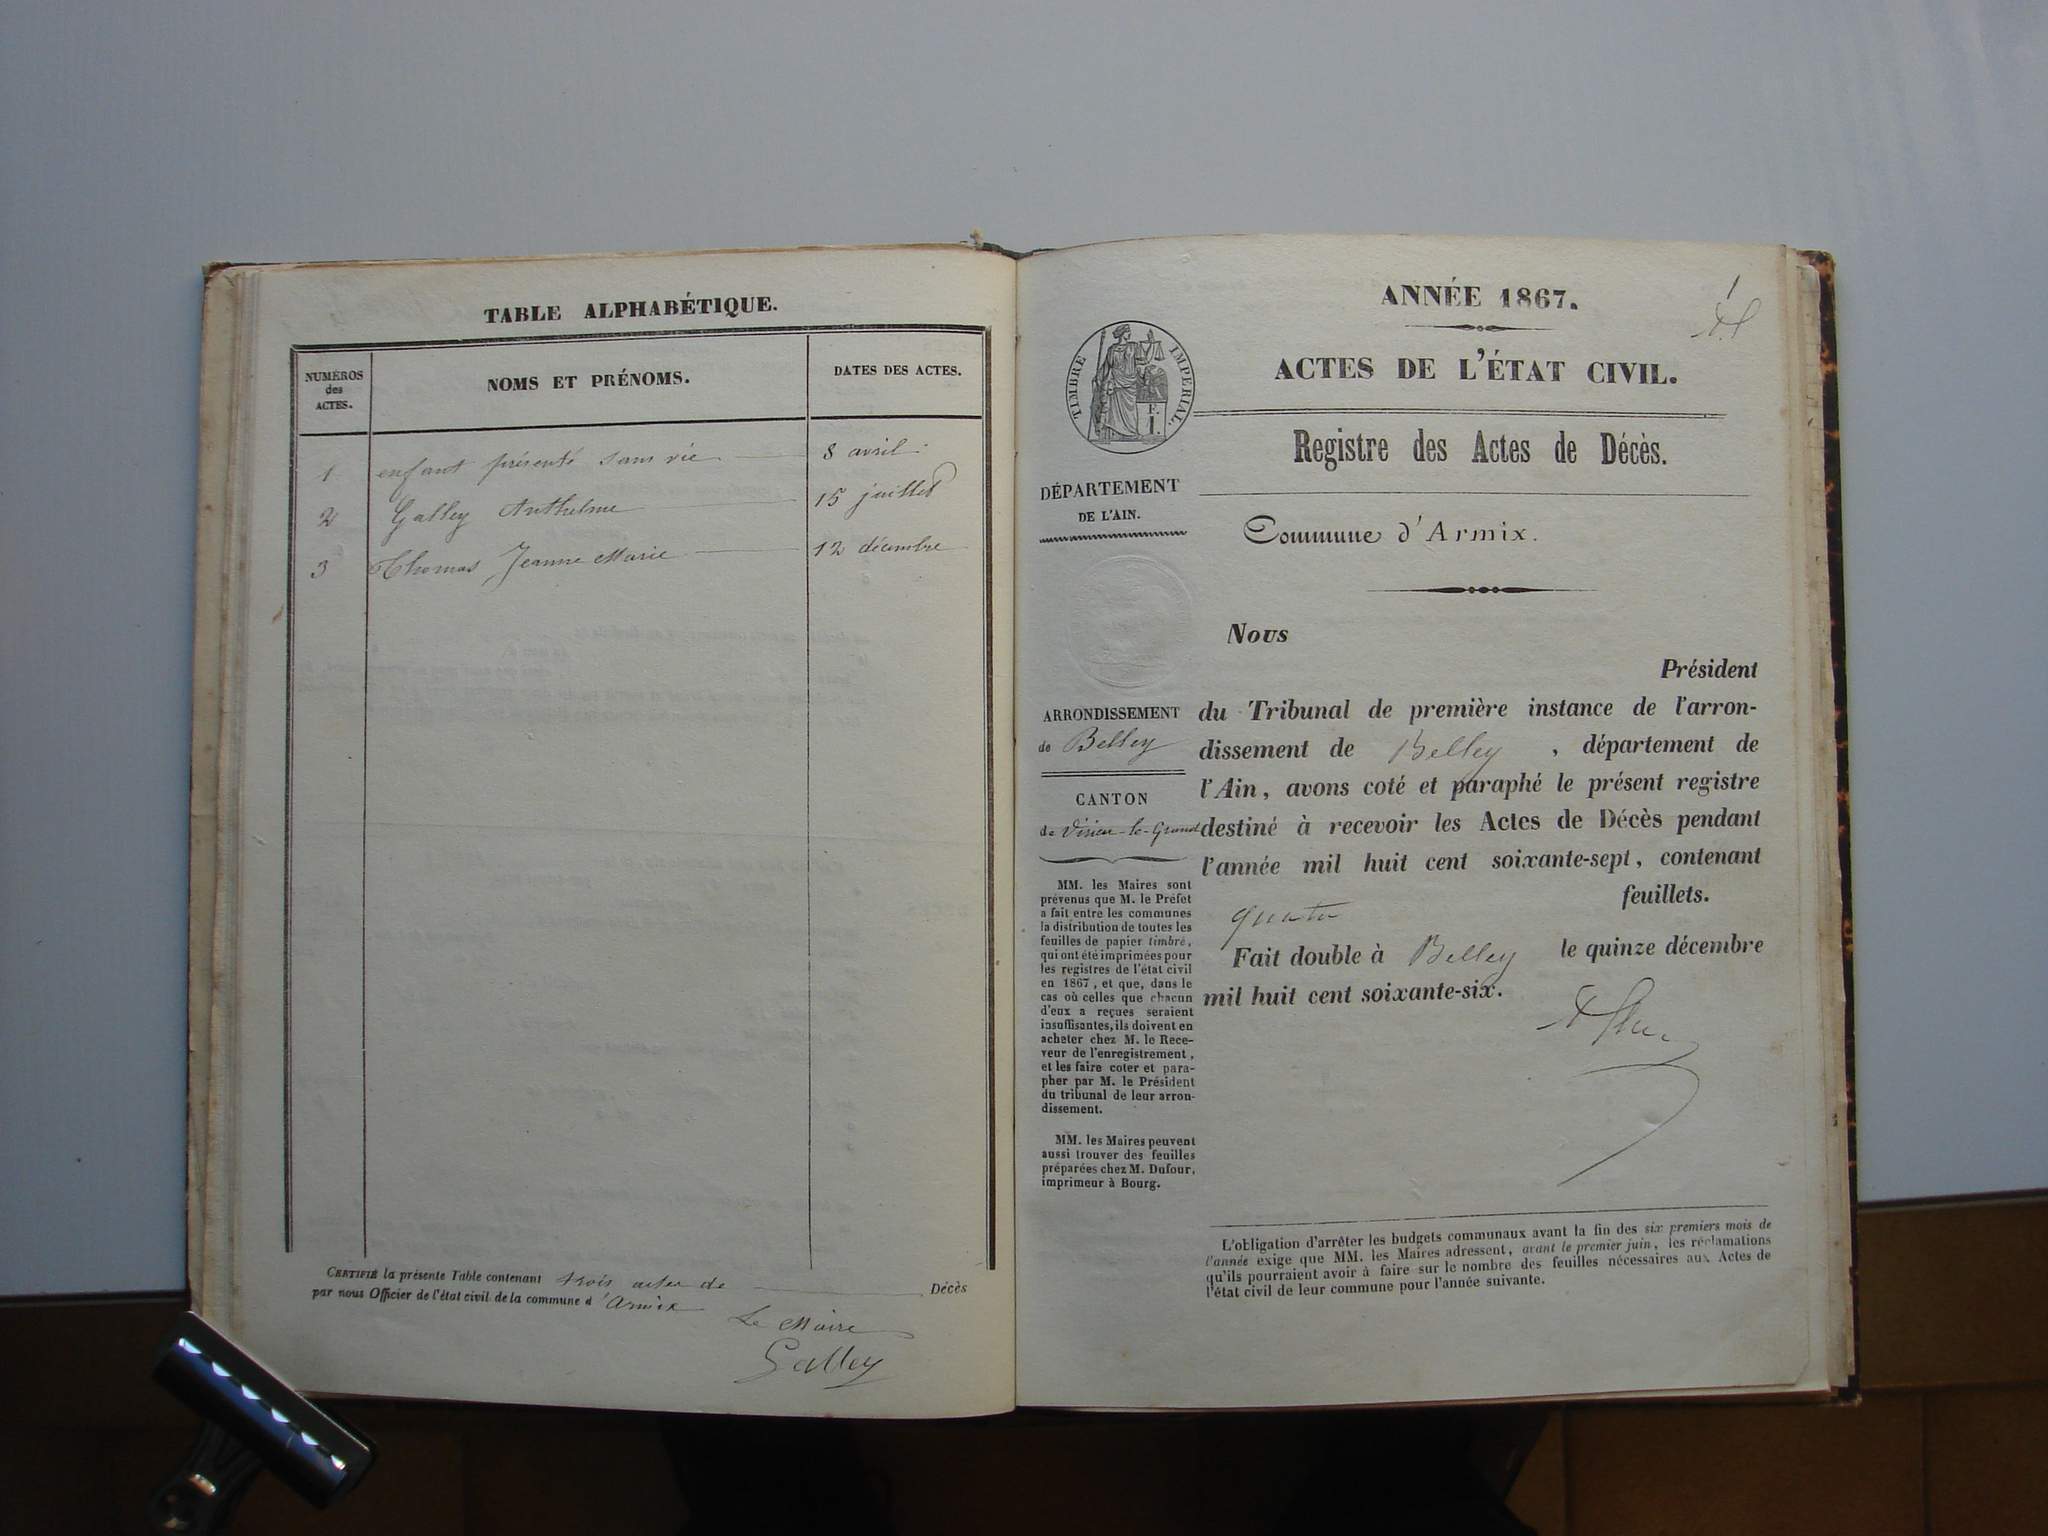 TABLE ALPHABÉTIQUE.
NUMÉROS
des
ACTES.
NOMS ET PRÉNOMS.
DATES DES ACTES.
1 enfant présenté sans vie 8 avril
2 Galley Anthelme 15 juillet
3 Thomas Jeanne Marie 12 décembre
CERTIFIÉ la présente Table contenant trois actes de Décès
par nous Officier de l'état civil de la commune d'Armix
Le Maire
Galley
1
ANNÉE 1867.
ACTES DE L'ÉTAT CIVIL.
TIMBRE IMPÉRIAL.
F.
1.
Registre des Actes de Décès.
DÉPARTEMENT
DE L'AIN.
Commune d'Armix.
ARRONDISSEMENT
de Belley
CANTON
de Virieu-le-Grand
MM. les Maires sont
prévenus que M. le Préfet
a fait entre les communes
la distribution de toutes les
feuilles de papier timbré,
qui ont été imprimées pour
les registres de l'état civil
en 1867, et que, dans le
cas où celles que chacun
d'eux a reçues seraient
insuffisantes, ils doivent en
acheter chez M. le Rece-
veur de l'enregistrement,
et les faire coter et para-
pher par M. le Président
du tribunal de leur arron-
dissement.
MM. les Maires peuvent
aussi trouver des feuilles
préparées chez M. Dufour,
imprimeur à Bourg.
Nous
Président
du Tribunal de première instance de l'arron-
dissement de Belley, département de
l'Ain, avons coté et paraphé le présent registre
destiné à recevoir les Actes de Décès pendant
l'année mil huit cent soixante-sept, contenant
quatre feuillets.
Fait double à Belley le quinze décembre
mil huit cent soixante-six.
L'obligation d'arrêter les budgets communaux avant la fin des six premiers mois de
l'année exige que MM. les Maires adressent, avant le premier juin, les réclamations
qu'ils pourraient avoir à faire sur le nombre des feuilles nécessaires aux Actes de
l'état civil de leur commune pour l'année suivante.